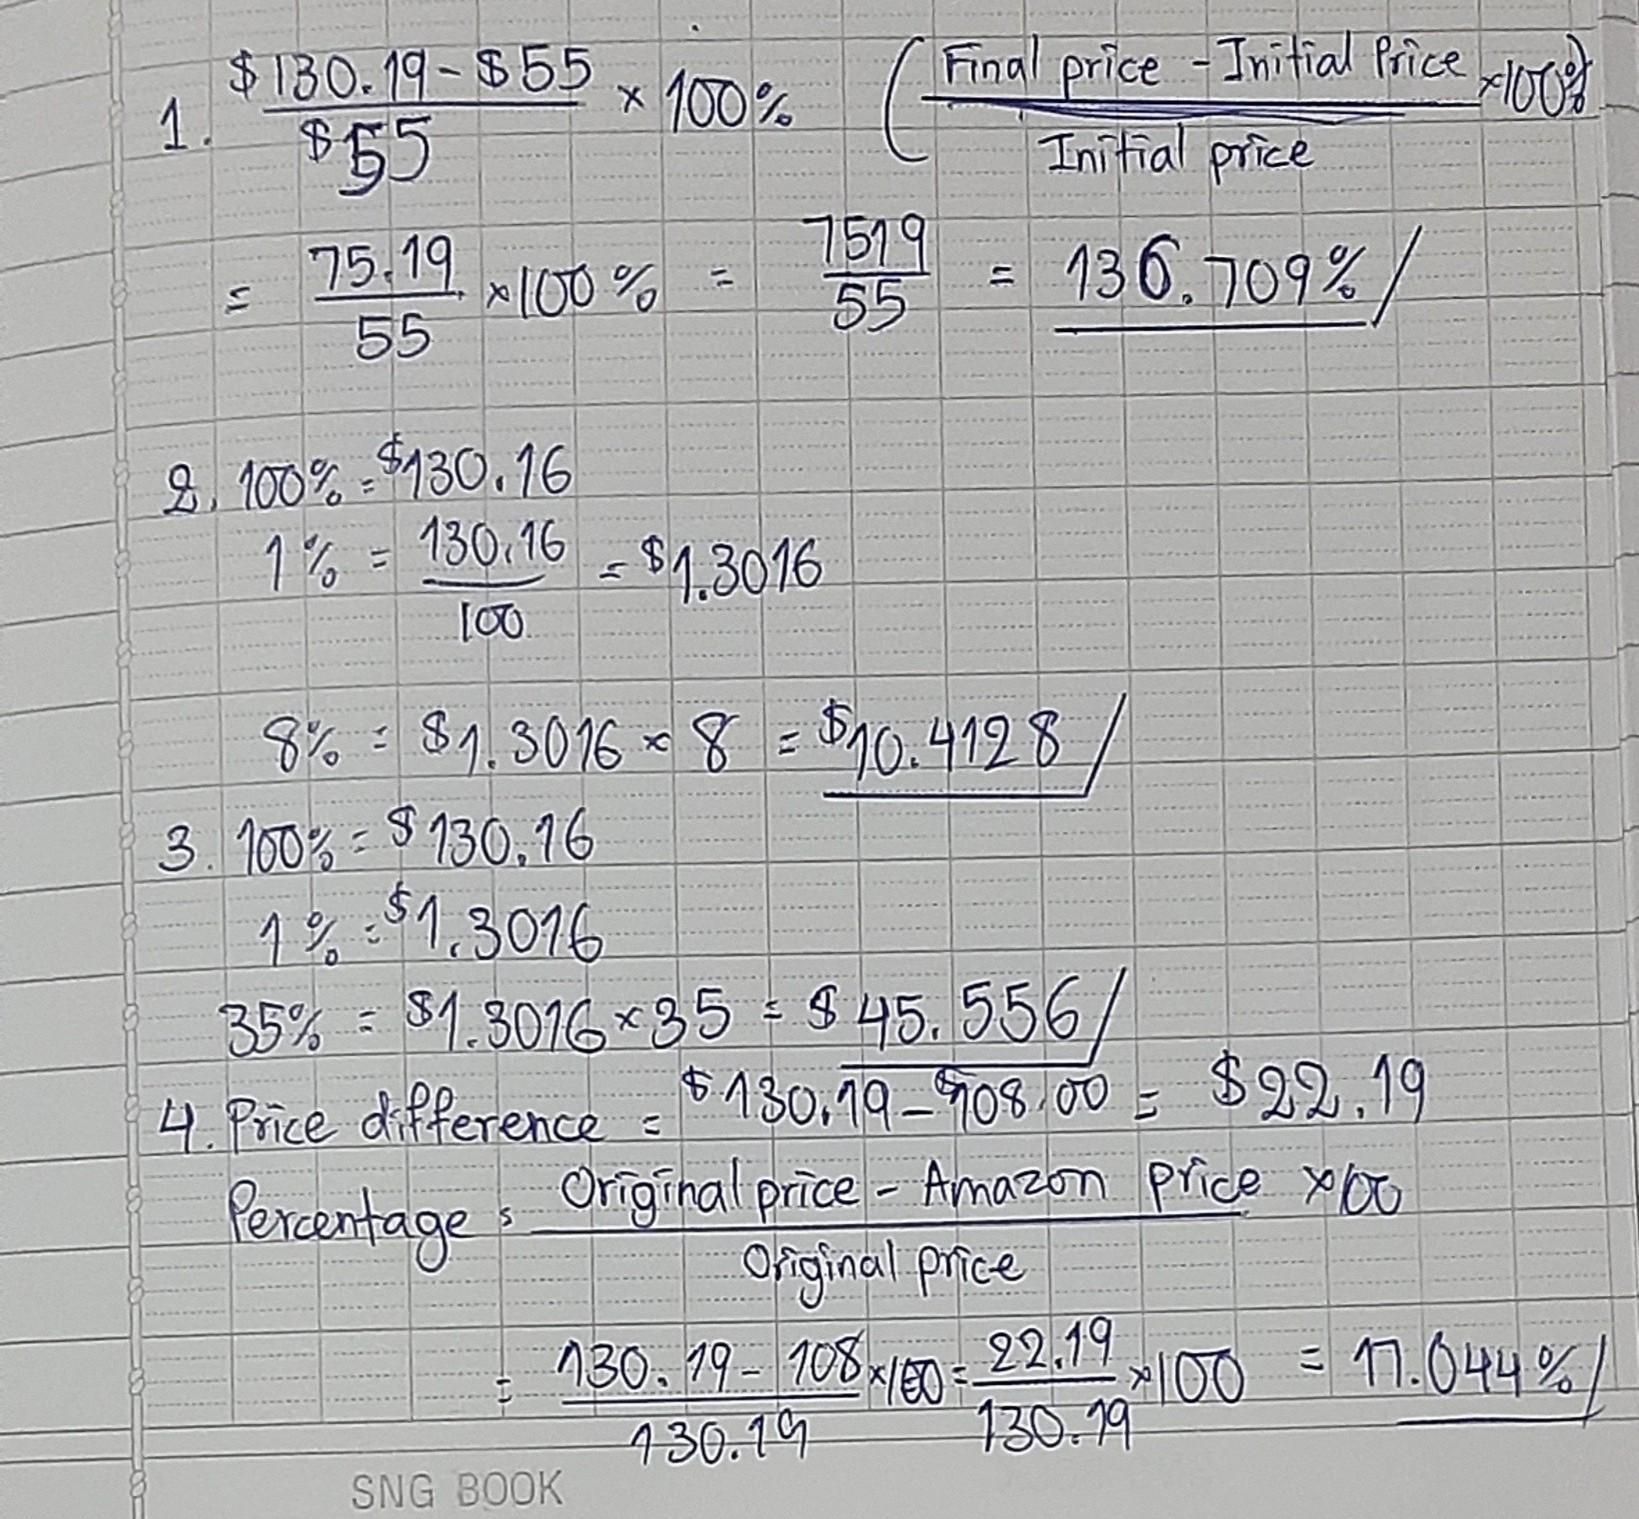 1. $130.19 - $55 / $55 × 100% (Final price - Initial Price / Initial price ×100%)
= 75.19 / 55 ×100% = 7519 / 55 = 136.709%/
2. 100% = $130.16
1% = 130.16 / 100 = $1.3016
8% = $1.3016 × 8 = $10.4128/
3. 100% = $130.16
1% = $1.3016
35% = $1.3016×35 = $45.556/
4. Price difference = $130.19 - $108.00 = $22.19
Percentage = Original price - Amazon price / Original price ×100
= 130.19 - 108 / 130.19 ×100 = 22.19 / 130.19 ×100 = 17.044%/
SNG BOOK